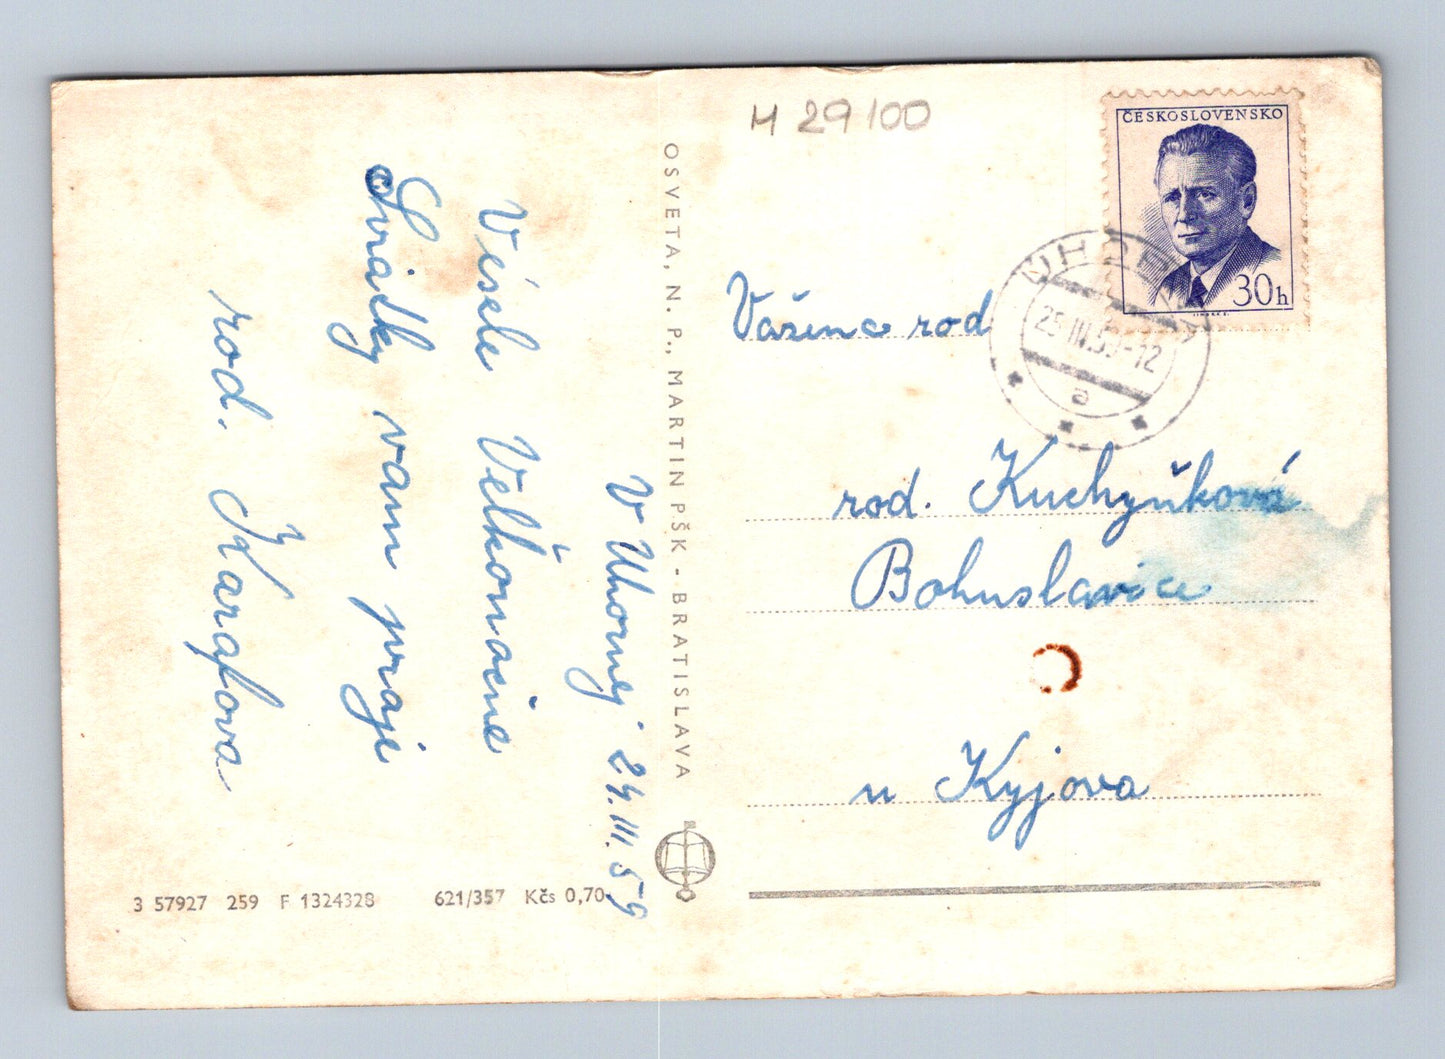 H 29100
ČESKOSLOVENSKO
30h
25.III.59-12
a
V Uhornej 24.III.59
Vesele Velkonočne
Sviatky vam praje
rod. Karafova
OSVETA, N. P., MARTIN PŠK - BRATISLAVA
Važena rod
rod. Kuchyňková
Bohuslavice
u Kyjova
3 57927 259 F 1324328 621/357 Kčs 0,70